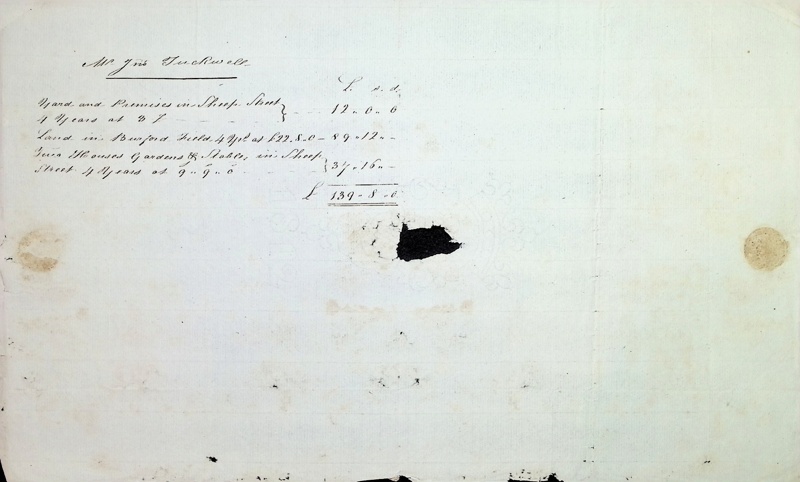 Mr Jno Tuckwell
£ s. d.
Yard and Premises in Sheep Street
4 Years at 3 £ 12 " 0 " 0
Land in Burford Field 4 Yrs at £22.8.0 - 89 " 12 " -
Two Houses Gardens & Stable, in Sheep
Street 4 Years at 9 " 9 " 0 37 " 16 " -
£ 139 " 8 " 0